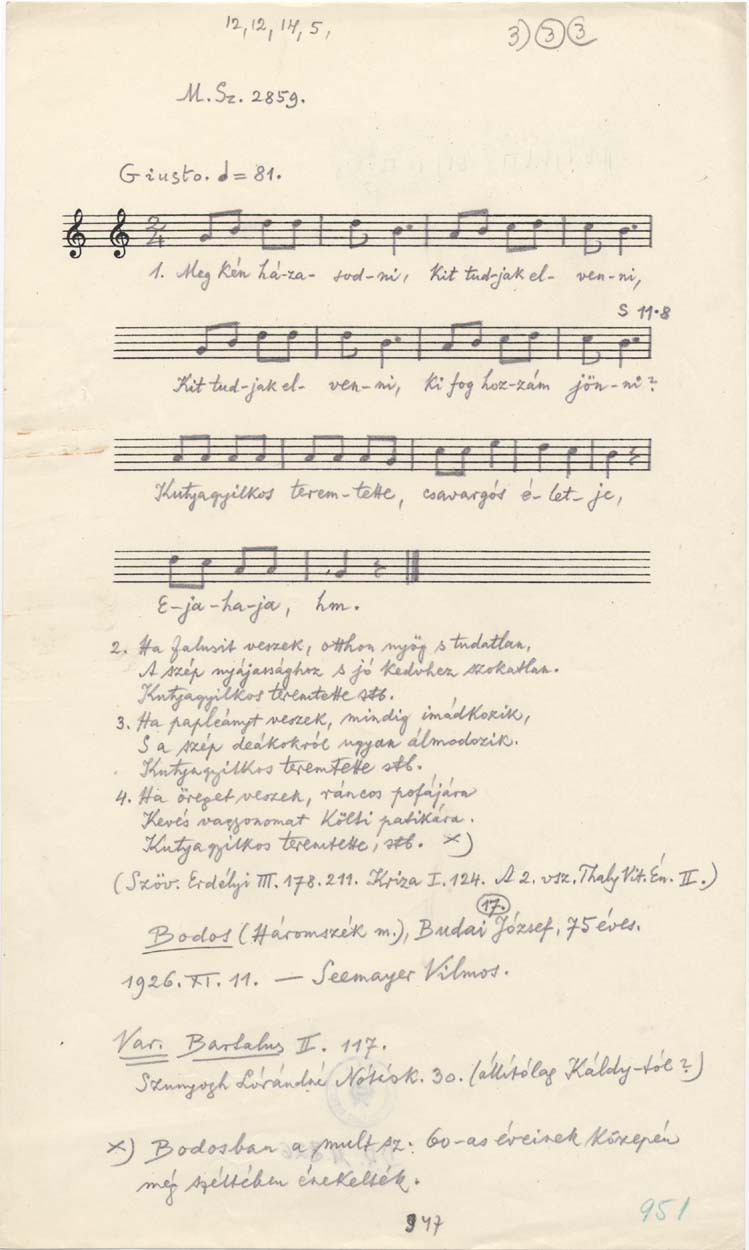 12, 12, 14, 5,
3) 3 3
M. Sz. 2859.
Giusto. ♩ = 81.
2/4
1. Meg kén há-za- sod-ni, Kit tud-jak el- ven-ni,
S 11·8
Kit tud-jak el- ven-ni, ki fog hoz-zám jön-ni?
Kutyagyilkos terem-tette, csavargós é-let-je,
E-ja-ha-ja, hm.
2. Ha falusit veszek, otthon nyög s tudatlan,
A szép nyájassághoz s jó kedvhez szokatlan.
Kutyagyilkos teremtette stb.
3. Ha papleányt veszek, mindig imádkozik,
S a szép deákokról ugyan álmodozik.
Kutyagyilkos teremtette stb.
4. Ha öreget veszek, ráncos pofájára
Kevés vagyonomat költi patikára.
Kutyagyilkos teremtette, stb. ×)
(Szöv. Erdélyi III. 178. 211. Kriza I. 124. A 2. vsz. Thaly Vit. Én. II.)
17.
Bodos (Háromszék m.), Budai József, 75 éves.
1926. XI. 11. — Seemayer Vilmos.
Var. Bartalus II. 117.
Szunyogh Lórándné Nótásk. 30. (állítólag Káldy-tól?)
×) Bodosban a mult sz. 60-as éveinek közepén
még széltében énekelték.
947
951